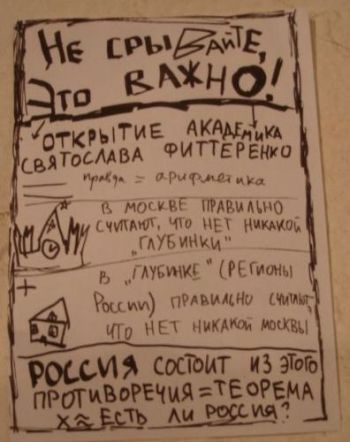 НЕ СРЫВАЙТЕ,
ЭТО ВАЖНО!
ОТКРЫТИЕ АКАДЕМИКА
СВЯТОСЛАВА ФИТТЕРЕНКО
правда = арифметика
В МОСКВЕ ПРАВИЛЬНО
СЧИТАЮТ, ЧТО НЕТ НИКАКОЙ
„ГЛУБИНКИ"
+
В „ГЛУБИНКЕ" (РЕГИОНЫ
России) ПРАВИЛЬНО СЧИТАЮТ,
ЧТО НЕТ НИКАКОЙ МОСКВЫ
РОССИЯ СОСТОИТ ИЗ ЭТОГО
ПРОТИВОРЕЧИЯ = ТЕОРЕМА
Х ≈ ЕСТЬ ЛИ РОССИЯ?